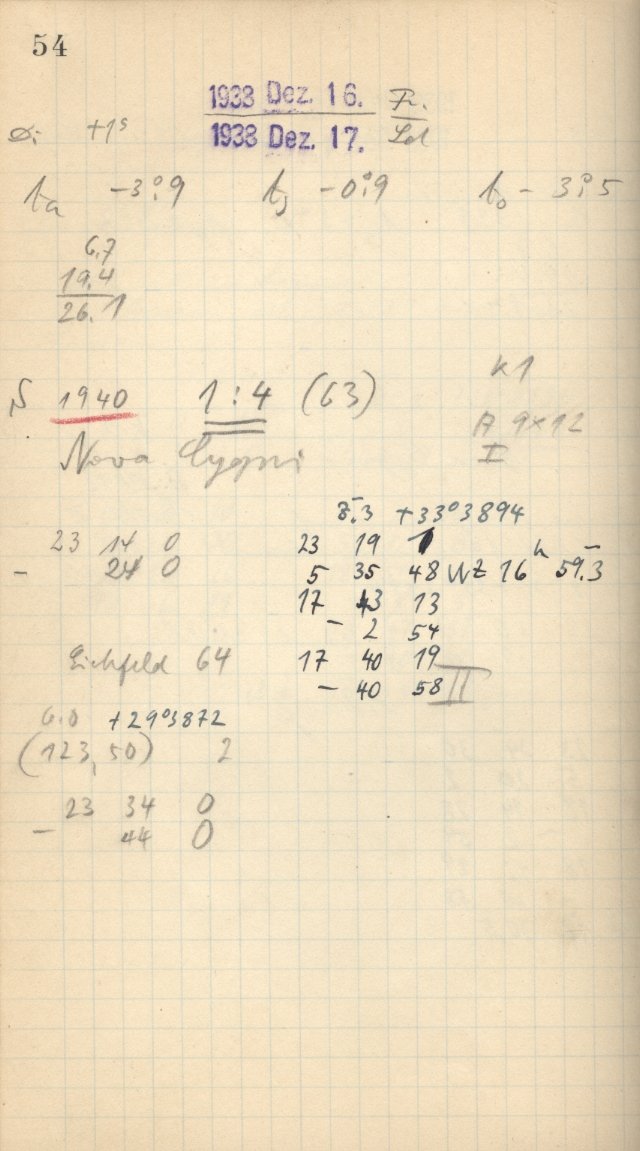 54
1938 Dez. 16. Fr.
+1ˢ 1938 Dez. 17.
tₐ -3°.9 -0°.9 t₀ - 3°.5
6.7
19.4
26.1
K1
S 1940 1 : 4 (63)
A 9×12
I
Nova Cygni
8.3 +33°3894
23 14 0 23 19 1
- 24 0 5 35 48 WZ 16ʰ 59.3
17 43 13
- 2 54
Eichfeld 64 17 40 19
- 40 58 II
6.0 +29°3872
(123, 50) 2
23 34 0
- 44 0